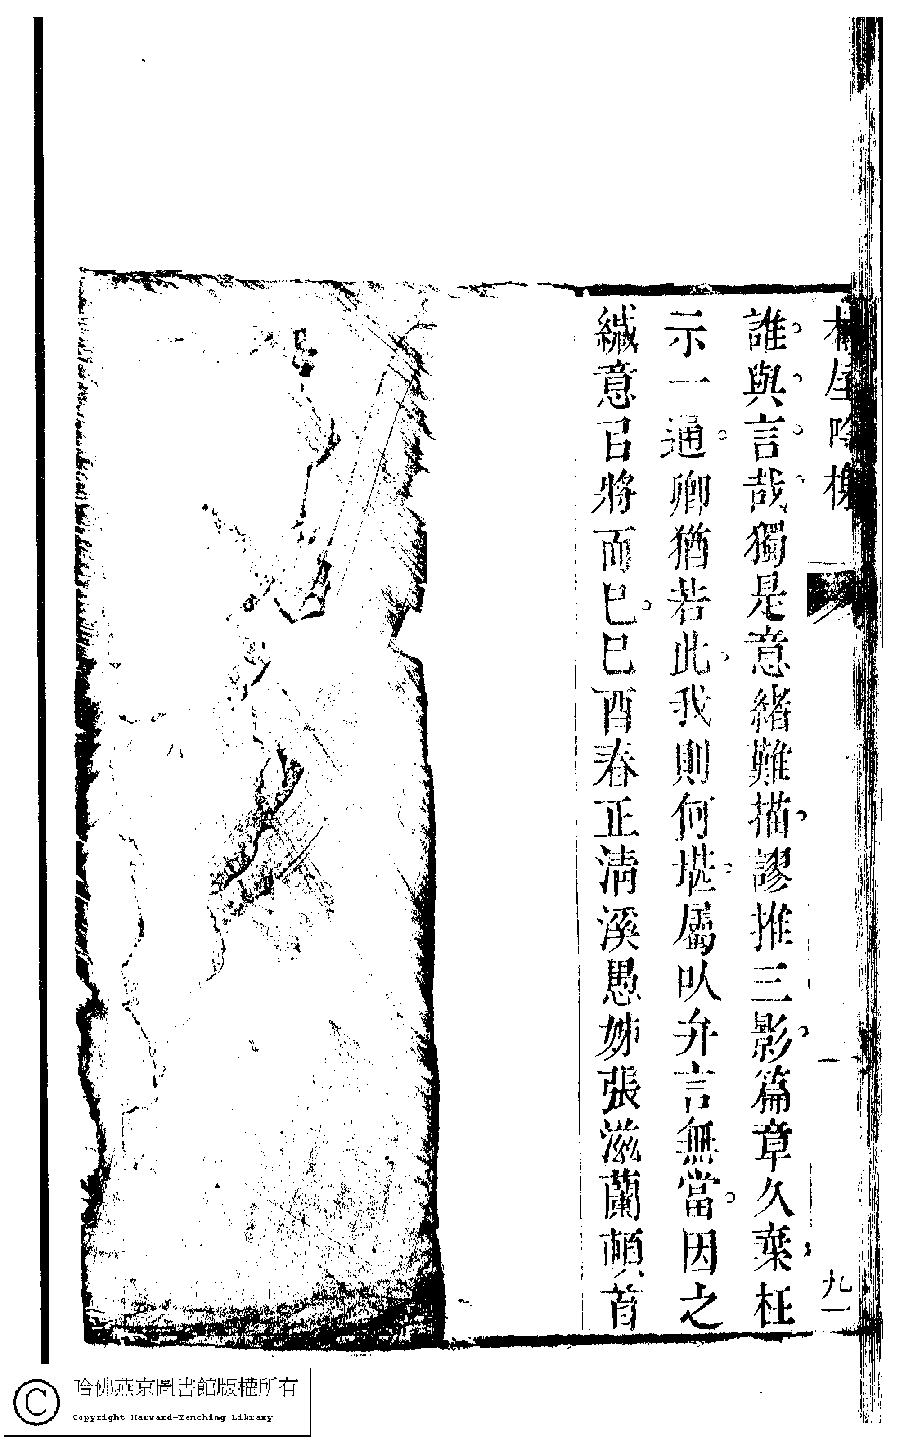 林屋吟榭
一
九
誰與言哉獨是意緒難描謬推三影篇章久棄枉
示一通卿猶若此我則何堪屬以弁言無當因之
緘意㠯將而已己酉春正清溪愚姊張滋蘭頓首
哈佛燕京圖書館版權所有
Copyright Harvard-Yenching Library